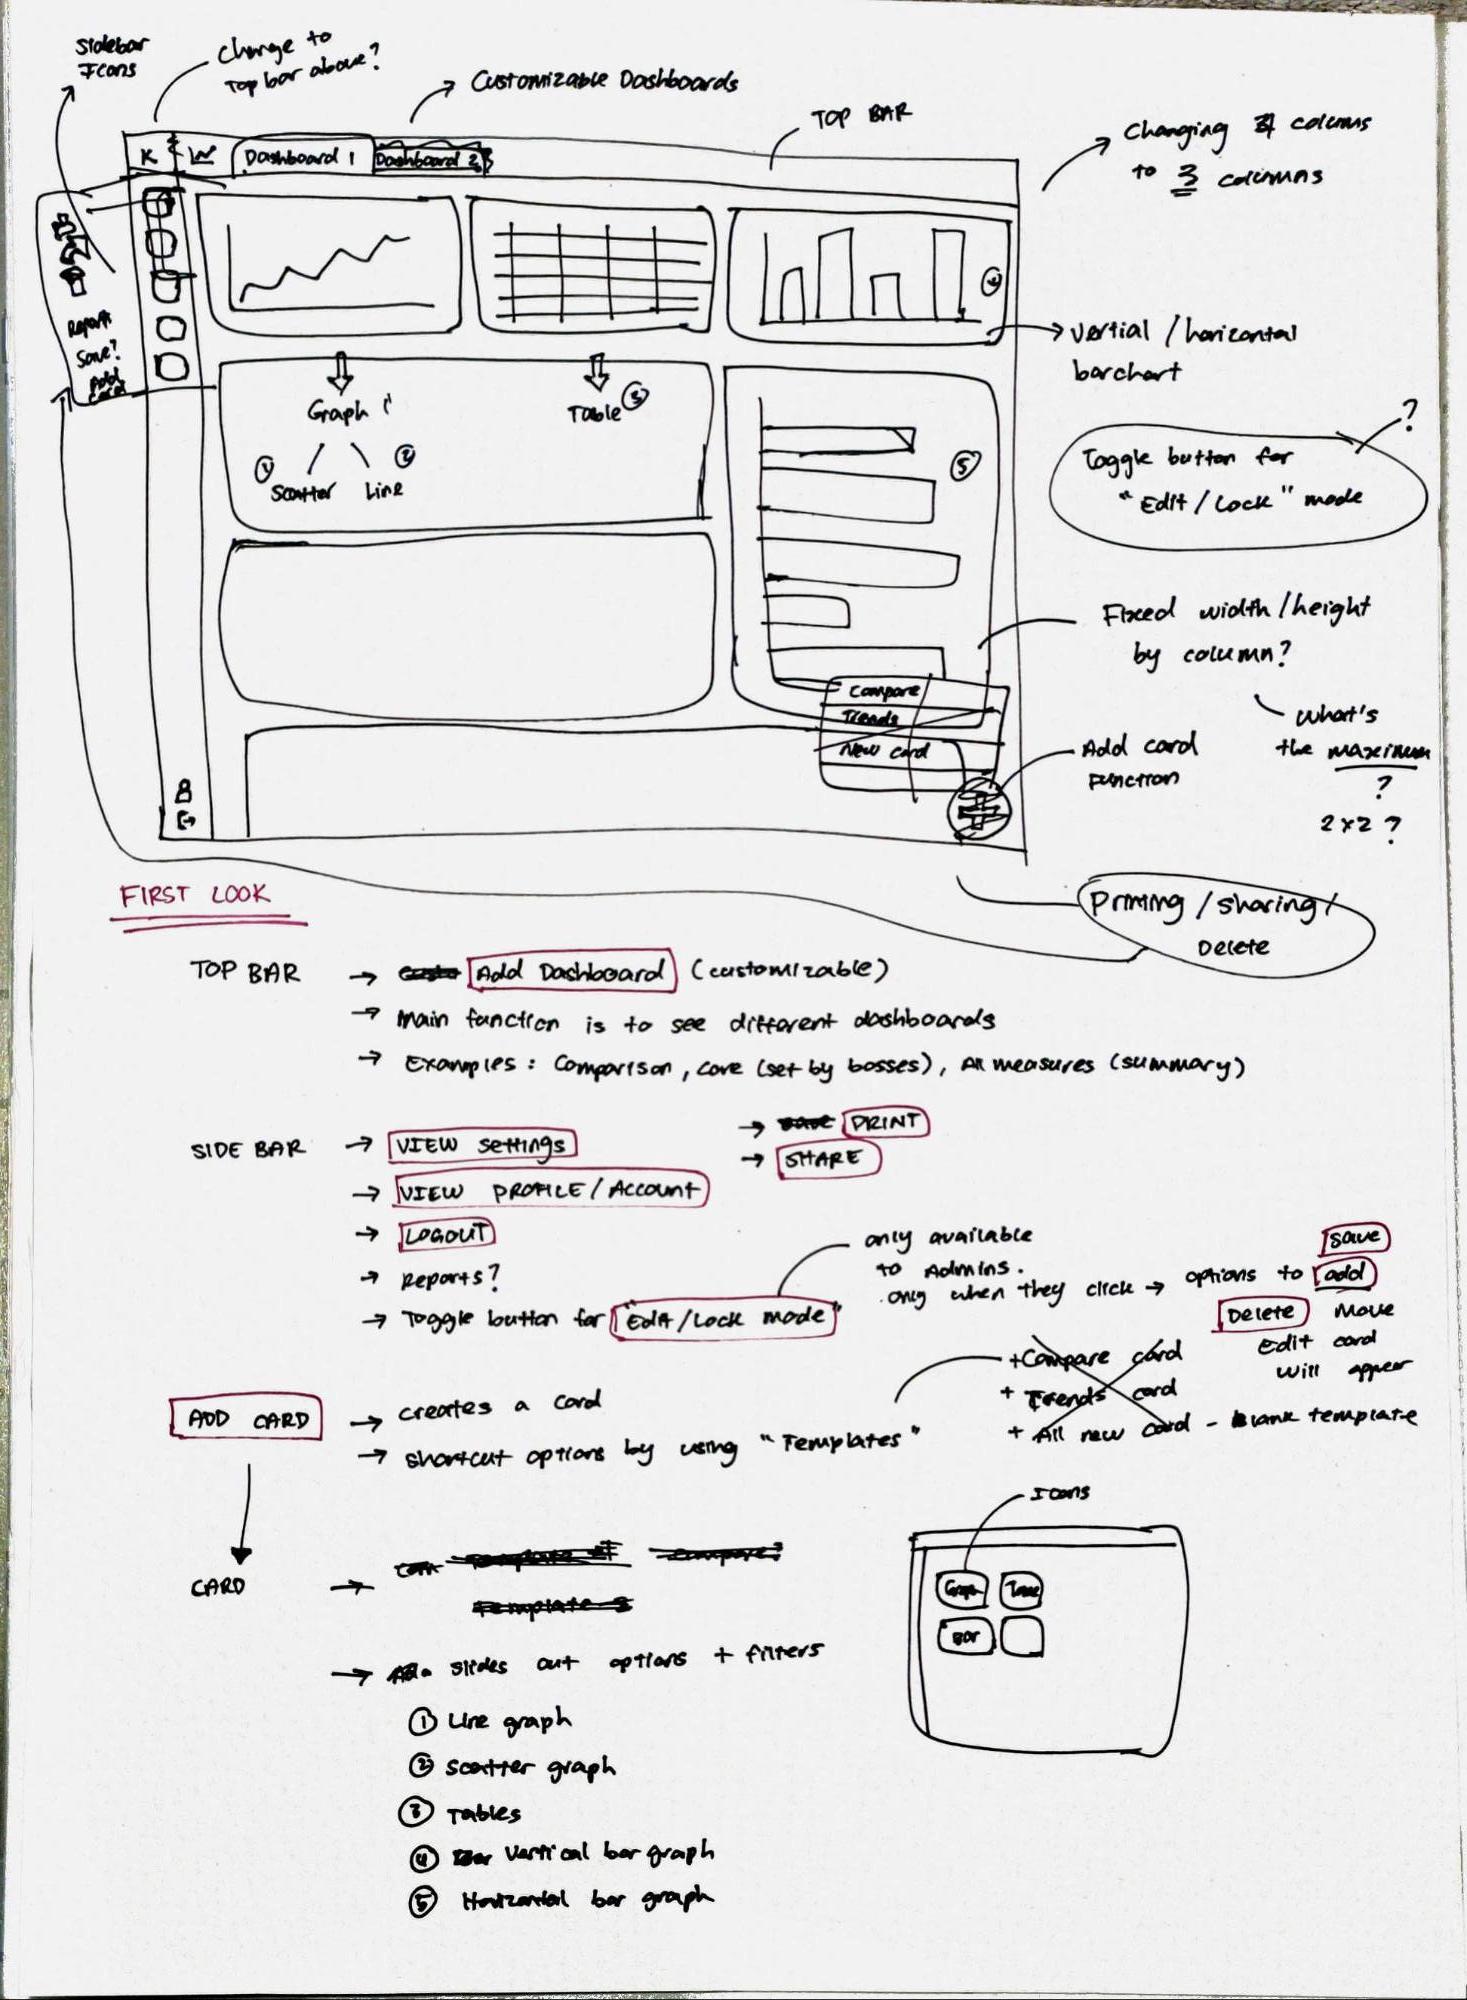 Sidebar
Icons
Change to
Top bar above?
Customizable Dashboards
TOP BAR
Changing 4 colums
to 3 columns
K
Dashboard 1
Dashboard 2
Report
Save?
Add
card
Graph
Table 3
1 2
Scatter Line
4
5
vertial / horizontal
barchart
?
Toggle button for
"Edit / Lock" mode
Fixed width / height
by column?
What's
the maximum
?
2 x 2 ?
Compare
Trends
New card
Add card
Function
Printing / sharing /
Delete
FIRST LOOK
TOP BAR → Add Dashboard (customizable)
→ Main function is to see different dashboards
→ Examples: Comparison, core (set by bosses), All measures (summary)
SIDE BAR → VIEW settings
→ PRINT
→ SHARE
→ VIEW PROFILE / Account
→ LOGOUT
→ Reports?
→ Toggle button for "Edit / Lock mode"
only available
to Admins.
only when they click → options to
save
add
Delete Move
Edit card
will appear
ADD CARD → creates a card
→ shortcut options by using "Templates"
+ Compare card
+ Trends card
+ All new card - Blank template
CARD →
Template
Compare?
Template 3
→ slides out options + filters
① Line graph
② scatter graph
③ Tables
④ vertical bar graph
⑤ Horizontal bar graph
Icons
Graph
Bar